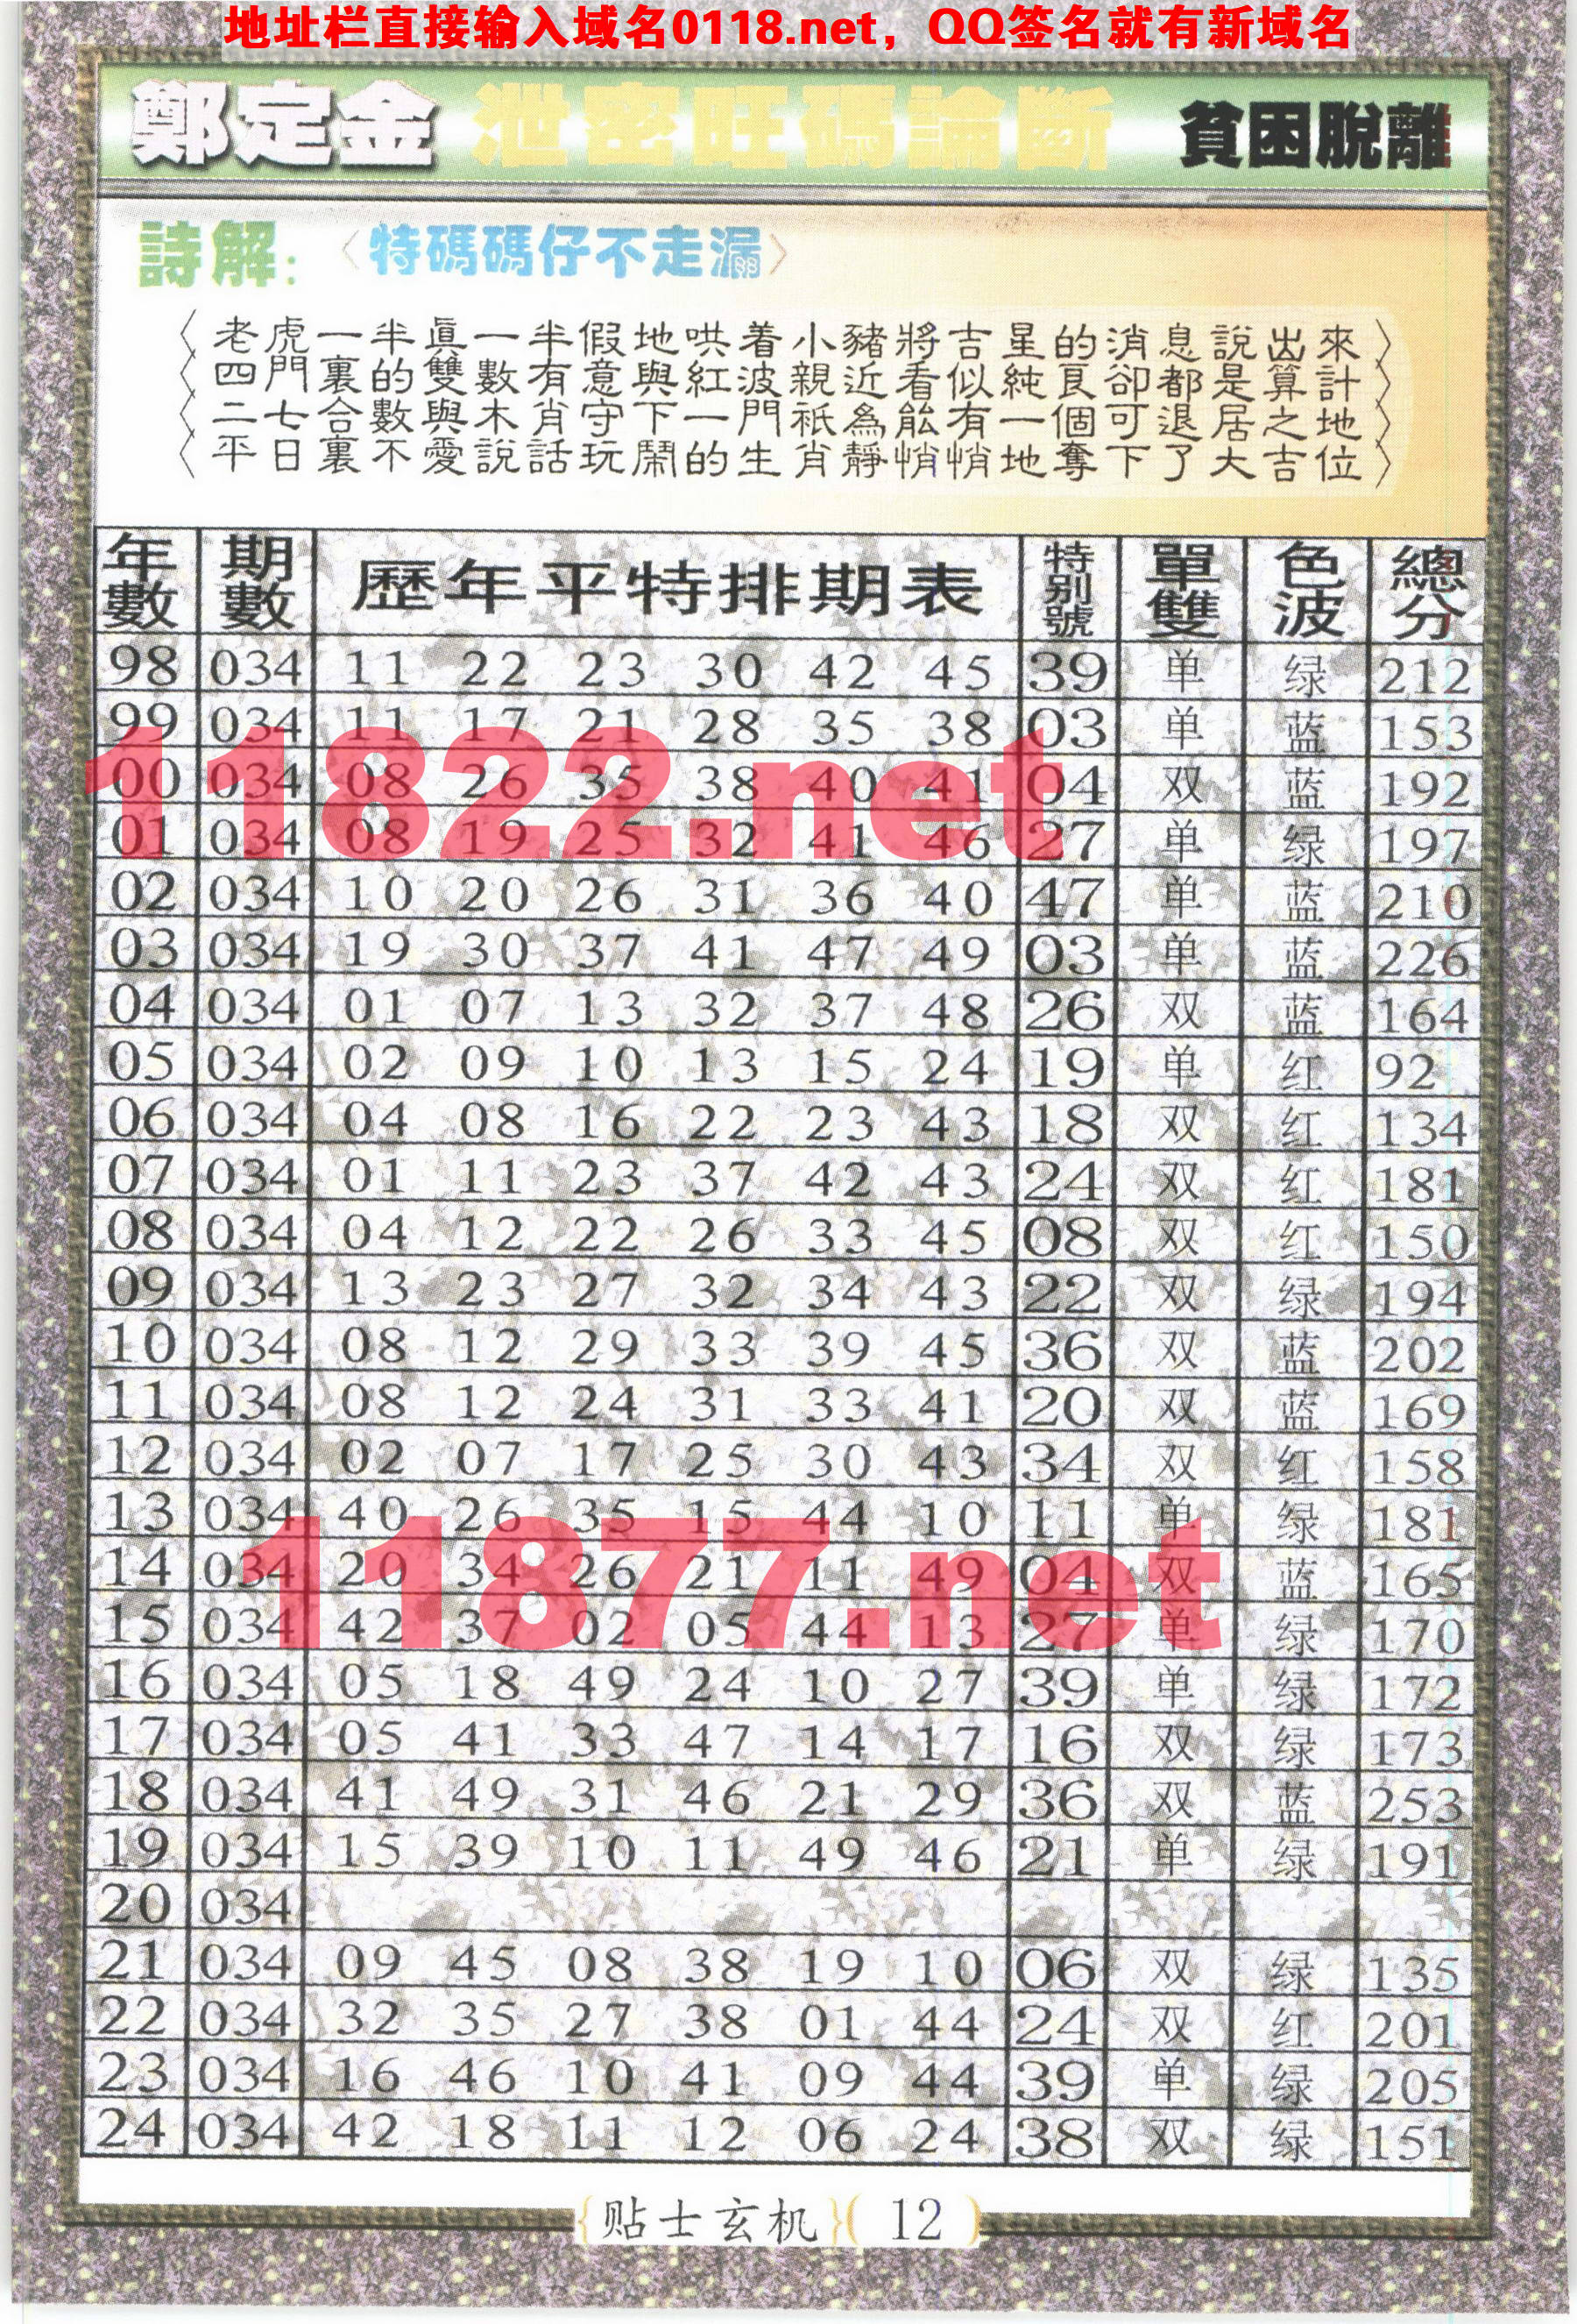 地址栏直接输入域名0118.net，QQ签名就有新域名
鄭定金 泄密旺碼論斷 貧困脫離
詩解：〈特碼碼仔不走漏〉
〈老虎一半真一半假地哄着小豬將吉星的消息說出來〉
〈四門裏的雙數有意與紅波親近看似純良卻都是算計〉
〈二七合數與木肖守下一門祇為能有一個可退居之地〉
〈平日裏不愛說話玩鬧的生肖靜悄悄地奪下了大吉位〉
年數 期數 歷年平特排期表 特别號 單雙 色波 總分
98 034 11 22 23 30 42 45 39 单 绿 212
99 034 11 17 21 28 35 38 03 单 蓝 153
00 034 08 26 35 38 40 41 04 双 蓝 192
01 034 08 19 25 32 41 46 27 单 绿 197
11822.net
02 034 10 20 26 31 36 40 47 单 蓝 210
03 034 19 30 37 41 47 49 03 单 蓝 226
04 034 01 07 13 32 37 48 26 双 蓝 164
05 034 02 09 10 13 15 24 19 单 红 92
06 034 04 08 16 22 23 43 18 双 红 134
07 034 01 11 23 37 42 43 24 双 红 181
08 034 04 12 22 26 33 45 08 双 红 150
09 034 13 23 27 32 34 43 22 双 绿 194
10 034 08 12 29 33 39 45 36 双 蓝 202
11 034 08 12 24 31 33 41 20 双 蓝 169
12 034 02 07 17 25 30 43 34 双 红 158
13 034 40 26 35 15 44 10 11 单 绿 181
14 034 20 34 26 21 11 49 04 双 蓝 165
15 034 42 37 02 05 44 13 27 单 绿 170
11877.net
16 034 05 18 49 24 10 27 39 单 绿 172
17 034 05 41 33 47 14 17 16 双 绿 173
18 034 41 49 31 46 21 29 36 双 蓝 253
19 034 15 39 10 11 49 46 21 单 绿 191
20 034
21 034 09 45 08 38 19 10 06 双 绿 135
22 034 32 35 27 38 01 44 24 双 红 201
23 034 16 46 10 41 09 44 39 单 绿 205
24 034 42 18 11 12 06 24 38 双 绿 151
{贴士玄机}( 12 )